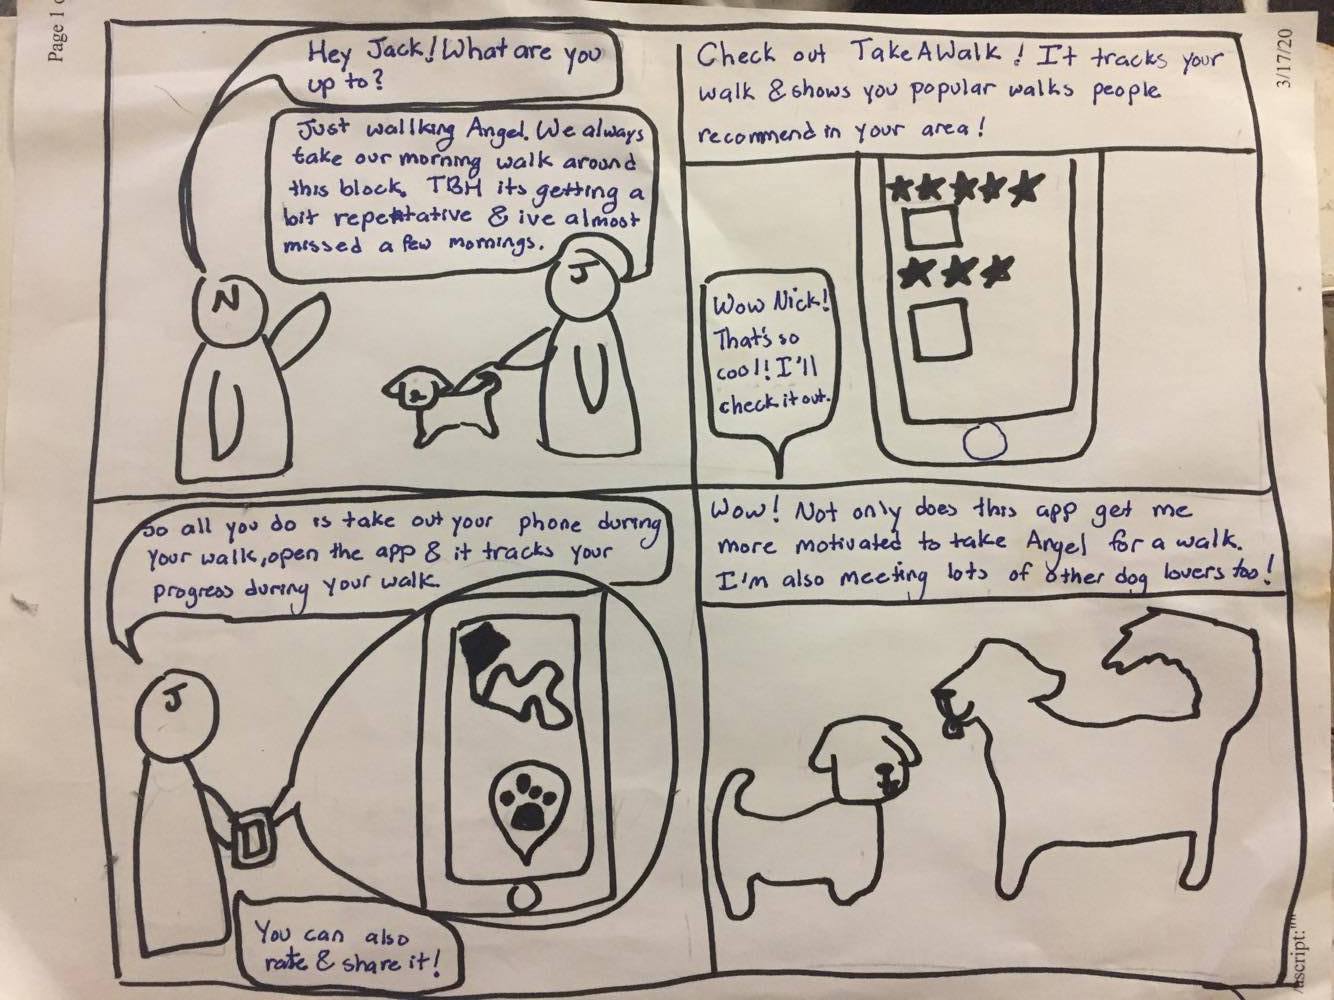 Page 1 o
3/17/20
Hey Jack! What are you
up to?
Just wallking Angel. We always
take our morning walk around
this block. TBH its getting a
bit repetative & ive almost
missed a few mornings.
N
J
Check out TakeAWalk! It tracks your
walk & shows you popular walks people
recommend in your area!
Wow Nick!
That's so
cool! I'll
check it out.
So all you do is take out your phone during
your walk, open the app & it tracks your
progress during your walk.
J
You can also
rate & share it!
Wow! Not only does this app get me
more motivated to take Angel for a walk.
I'm also meeting lots of other dog lovers too!
ascript:""